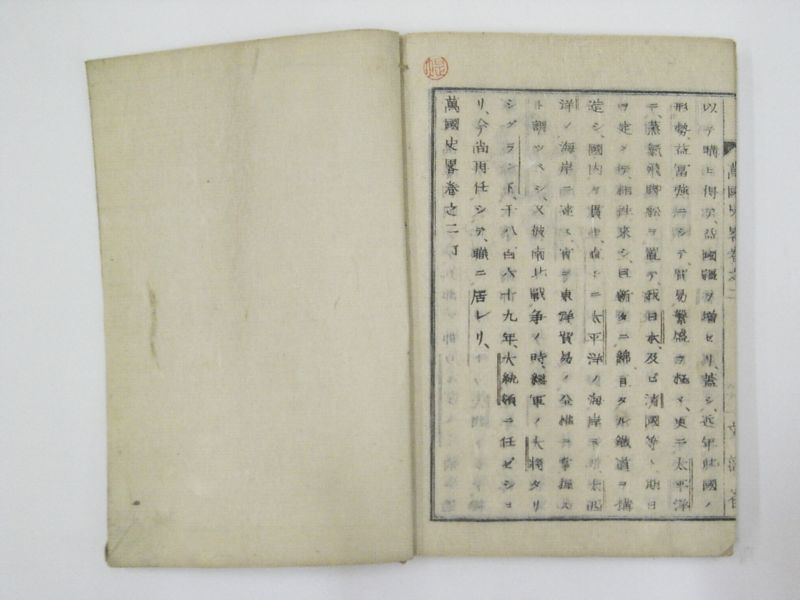 萬國史畧卷之二
以テ購ヒ得テ、益國疆ヲ増セリ、蓋シ、近年此國ノ
形勢、益富強ニシテ、貿易繁盛ヲ極メ、更ニ太平洋
ニ、蒸氣飛脚船ヲ置テ、我日本、及ビ清國等ト、期日
ヲ定メテ、相往來シ、且新タニ綿亘タル鐵道ヲ搆
造シ、國内ヲ貫 太平洋ノ海岸ヨリ、太西
洋ノ海岸ニ達ス、實ニ東洋貿易ノ全權ヲ掌握ス
ト謂ツベシ、又彼南北戰争ノ時、總軍ノ大將タリ
シグラント、千八百六十九年、大統領ニ任ゼショ
リ、今尚再任シテ、職ニ居レリ、
萬國史畧卷之二